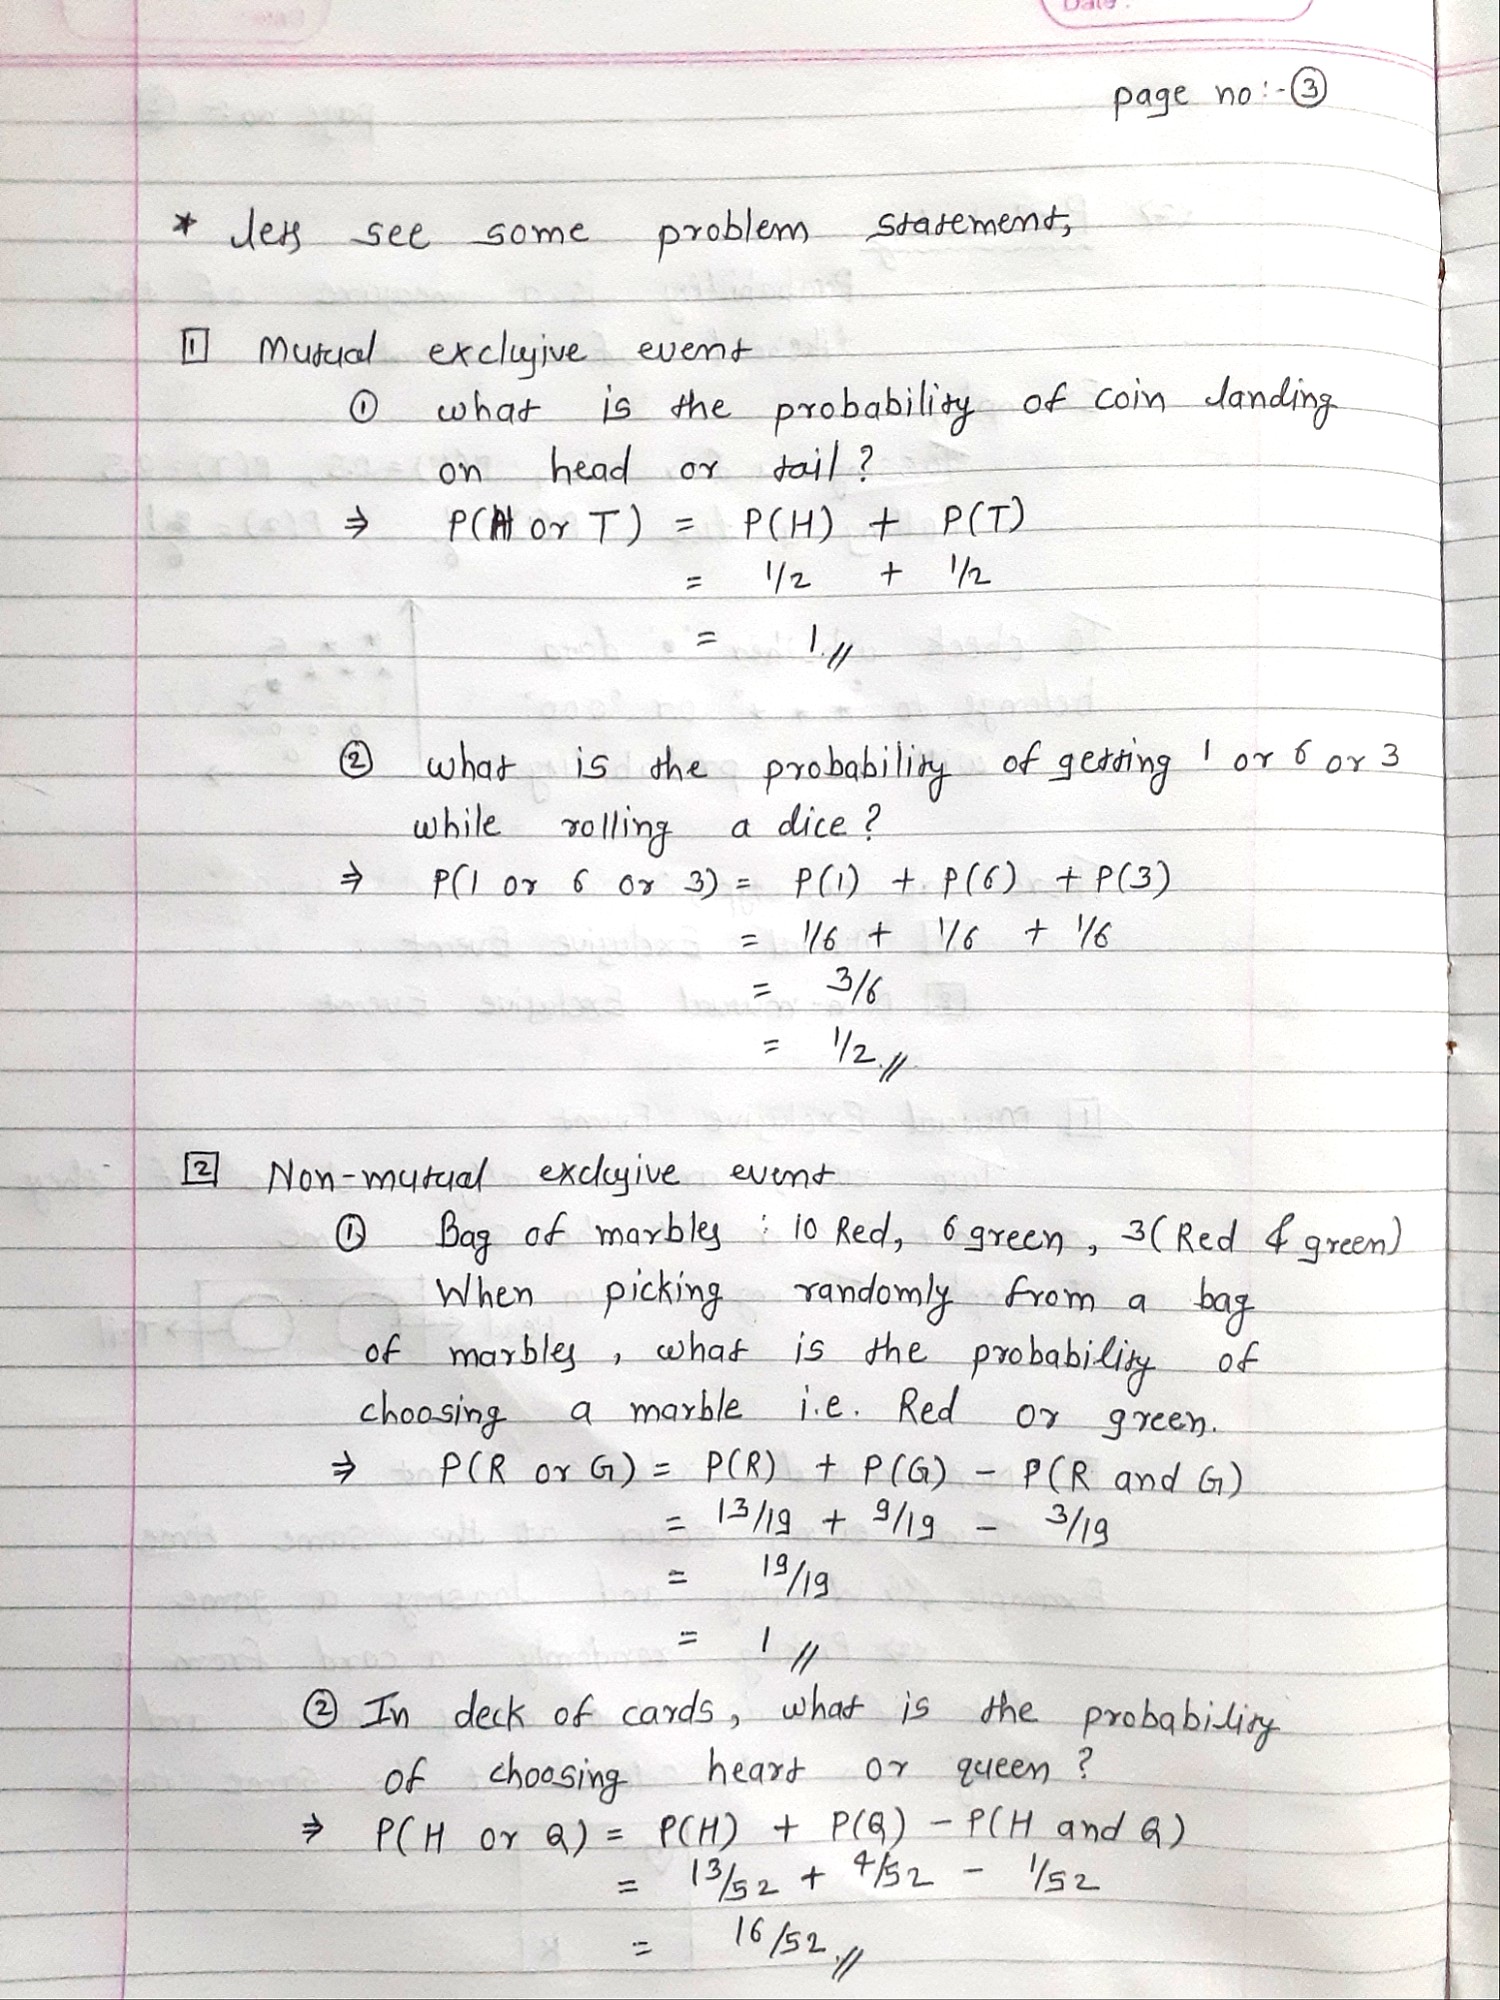 Date:
page no:- ③
* lets see some problem statement,
1 Mutual exclusive event
① what is the probability of coin landing
on head or tail?
⇒ P(H or T) = P(H) + P(T)
= 1/2 + 1/2
= 1.//
② what is the probability of getting 1 or 6 or 3
while rolling a dice?
⇒ P(1 or 6 or 3) = P(1) + P(6) + P(3)
= 1/6 + 1/6 + 1/6
= 3/6
= 1/2.//
2 Non-mutual exclusive event
① Bag of marbles : 10 Red, 6 green, 3(Red & green)
When picking randomly from a bag
of marbles, what is the probability of
choosing a marble i.e. Red or green.
⇒ P(R or G) = P(R) + P(G) - P(R and G)
= 13/19 + 9/19 - 3/19
= 19/19
= 1 //
② In deck of cards, what is the probability
of choosing heart or queen?
⇒ P(H or Q) = P(H) + P(Q) - P(H and Q)
= 13/52 + 4/52 - 1/52
= 16/52.//